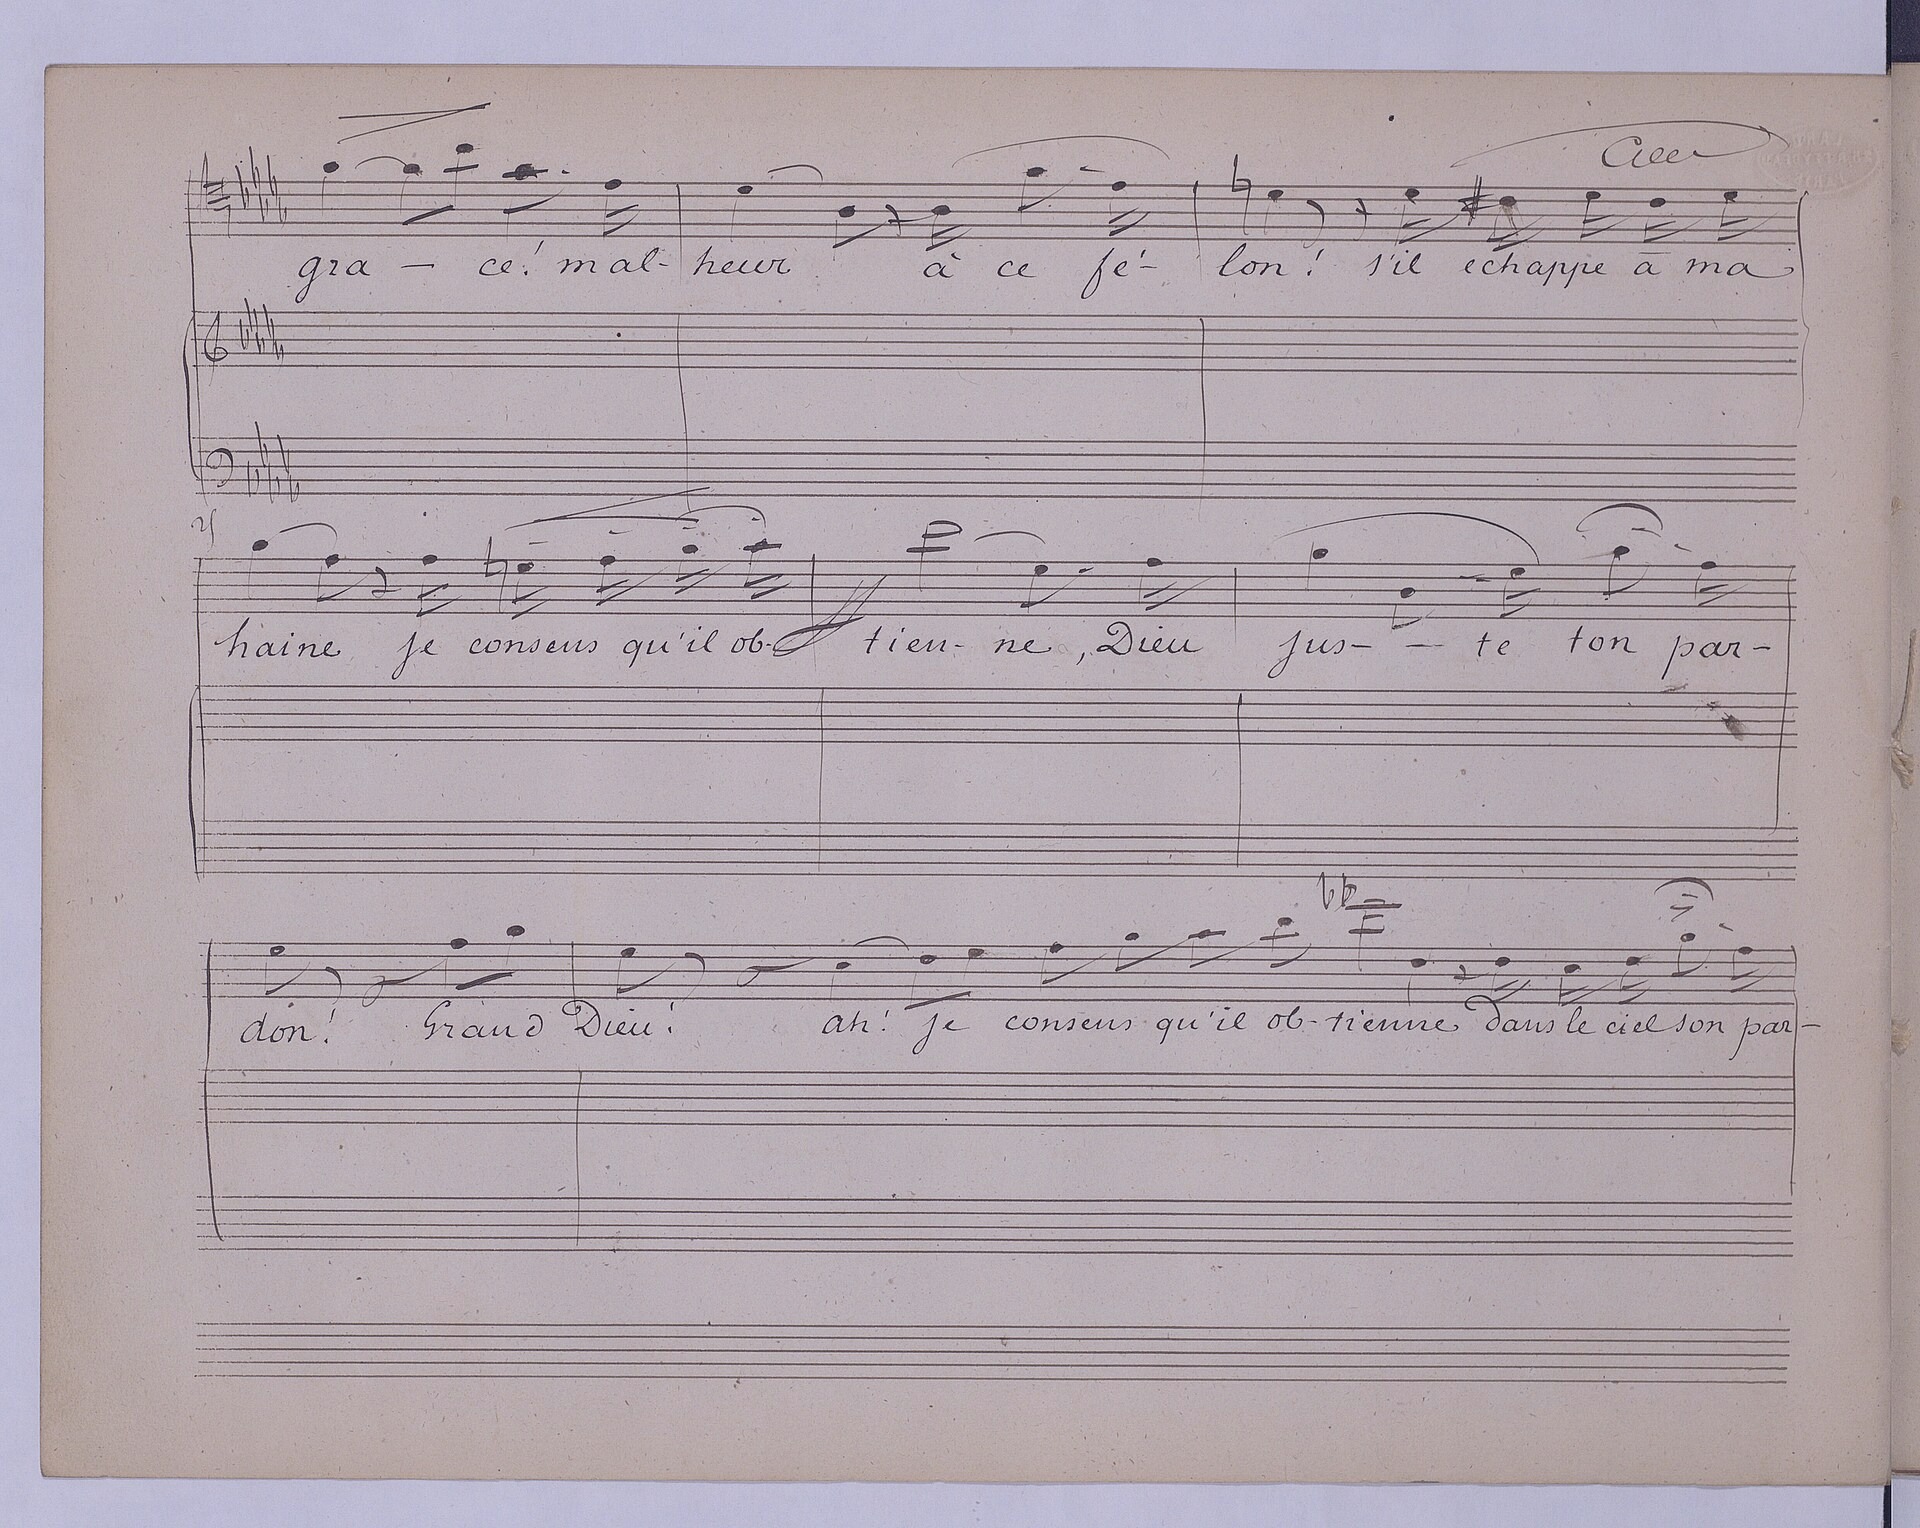 gra – ce! mal- heur à ce fé- lon! s'il echappe à ma
haine je consens qu'il ob- tien- ne, Dieu jus- – te ton par-
don! Grand Dieu! ah! je consens qu'il ob- tienne dans le ciel son par-